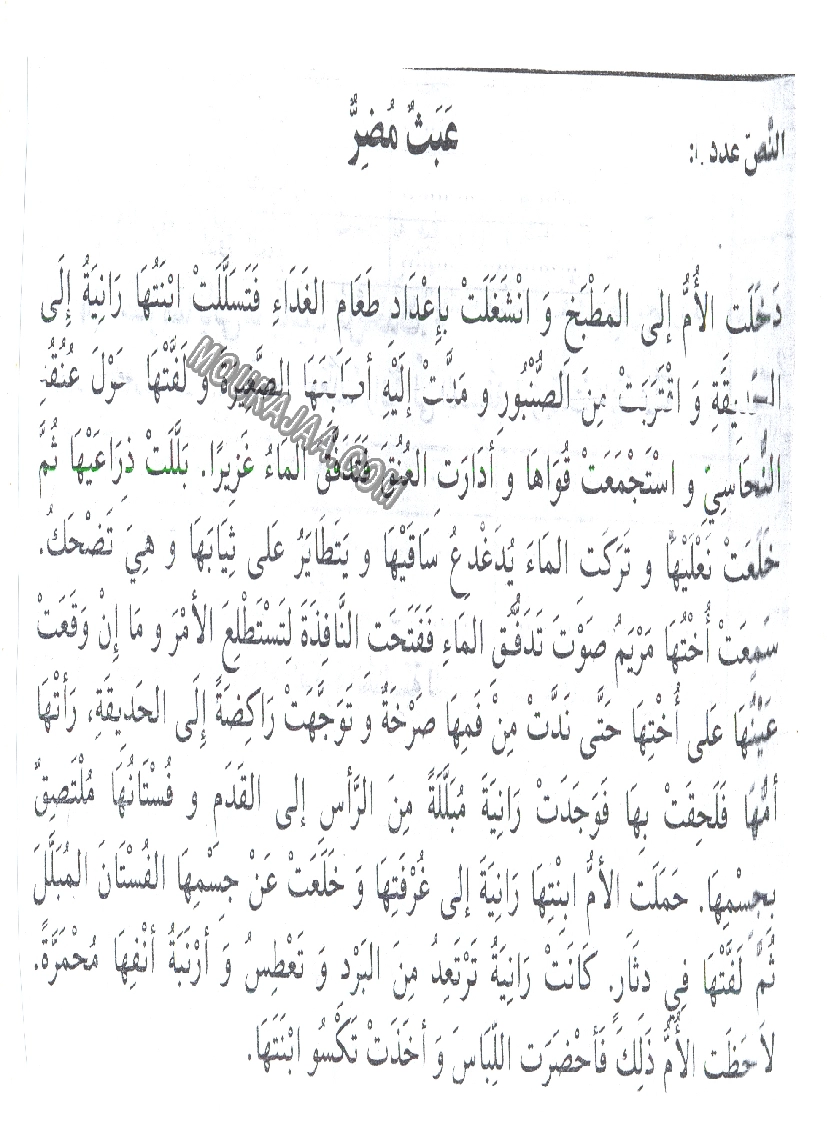 النَّصّ عدد 1:
عَبَثٌ مُضِرٌّ
دَخَلَت الأُمُّ إلى المَطْبَخِ وَ انْشَغَلَتْ بِإِعْدَادِ طَعَامِ الغَدَاءِ فَتَسَلَّلَتْ ابْنَتُهَا رَانِيَةُ إِلَى
الحَدِيقَةِ وَ اقْتَرَبَتْ مِنَ الصُّنْبُورِ و مَدَّتْ إِلَيْهِ أصَابِعَهَا الصَّغِيرَةَ و لَفَّتْهَا حَوْلَ عُنُقِهِ
النُّحَاسِيّ و اسْتَجْمَعَتْ قُوَاهَا و أدَارَتِ العُنُقَ فَتَدَفَّقَ المَاءُ غَزِيرًا. بَلَّلَتْ ذِرَاعَيْهَا ثُمَّ
خَلَعَتْ نَعْلَيْهَا و تَرَكَت المَاءَ يُدَغْدِغُ سَاقَيْهَا و يَتَطَايَرُ عَلى ثِيَابَهَا و هِيَ تَضْحَكُ.
سَمِعَتْ أُخْتُهَا مَرْيَمُ صَوْتَ تَدَفُّقِ المَاءِ فَفَتَحَت النَّافِذَةَ لِتَسْتَطْلِعَ الأمْرَ و مَا إِنْ وَقَعَتْ
عَيْنُهَا عَلى أُخْتِهَا حَتَّى نَدَّتْ مِنْ فَمِهَا صَرْخَةٌ وَ تَوَجَّهَتْ رَاكِضَةً إِلَى الحَدِيقَةِ، رَأتْهَا
أمُّهَا فَلَحِقَتْ بِهَا فَوَجَدَتْ رَانِيَةَ مُبَلَّلَةً مِنَ الرَّأسِ إلى القَدَمِ و فُسْتَانُهَا مُلْتَصِقٌ
بِجِسْمِهَا. حَمَلَت الأمُّ ابنِتِهَا رَانِيَةَ إلى غُرْفَتِهَا وَ خَلَعَتْ عَنْ جِسْمِهَا الفُسْتَانَ المُبَلَّلَ
ثُمَّ لَفَّتْهَا فِي دِثَارٍ. كَانَتْ رَانِيَةُ تَرْتَعِدُ مِنَ البَرْدِ وَ تَعْطِسُ وَ أرْنَبَةُ أنْفِهَا مُحْمَرَّةً.
لاَحَظَت الأُمُّ ذَلِكَ فَأحْضَرَت اللِّبَاسَ وَ أخَذَتْ تَكْسُو ابْنَتَهَا.
MOURAJAA.COM